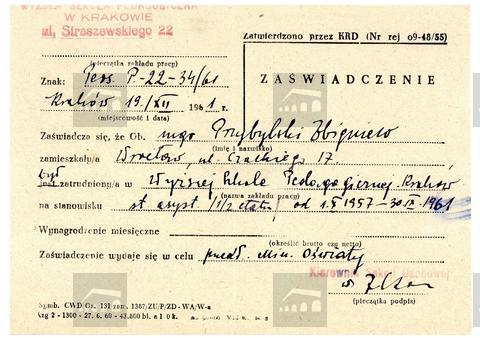 WYŻSZA SZKOŁA PEDAGOGICZNA
W KRAKOWIE
ul. Straszewskiego 22
(pieczątka zakładu pracy)
Zatwierdzono przez KRD (Nr rej o9-48/55)
Znak: Pers. P-22-34/61
ZAŚWIADCZENIE
Kraków 19/XII 1961 r.
(miejscowość i data)
Zaświadcza się, że Ob. mgr Przybylski Zbigniew
(imię i nazwisko)
zamieszkały/a Wrocław, ul. Czackiego 17.
był
zatrudniony/a w Wyższej Szkole Pedagogicznej Kraków
(nazwa zakładu pracy)
na stanowisku st. asyst. (1/2 etatu) od 1.X 1957 - 30 IX 1961
Wynagrodzenie miesięczne
(określić brutto czy netto)
Zaświadczenie wydaje się w celu przedł. Min. Oświaty
Kierownik Sekcji Osobowej
(pieczątka podpis)
Symb. CWD Os. 131 zam. 1367/ZU/PZD-WA/W-a
Kzg 2 - 1300 - 27. 6. 60 - 43.800 bl. a 10 k.